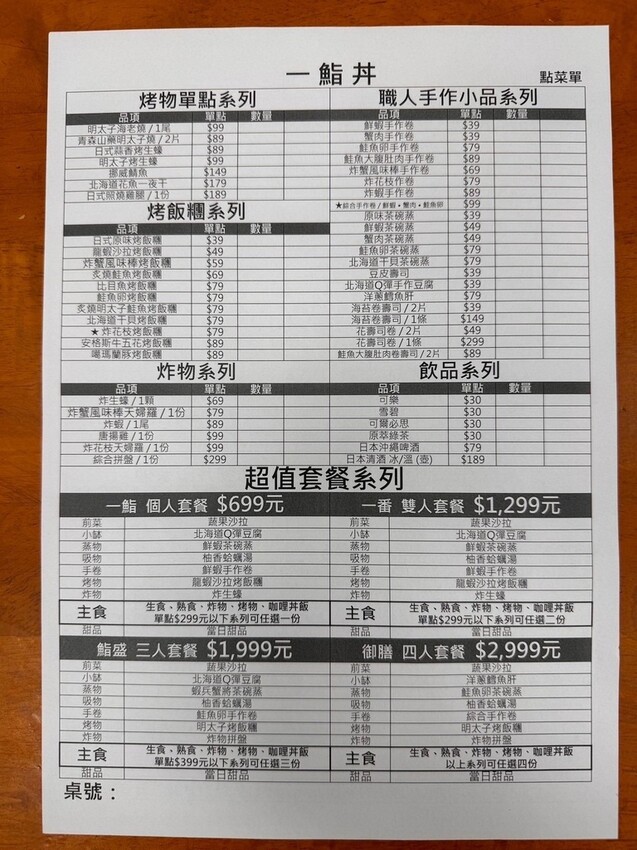 一鮨丼
點菜單
烤物單點系列
品項 單點 數量
明太子海老燒/1尾 $99
青森山藥明太子燒/2片 $89
日式蒜香烤生蠔 $89
明太子烤生蠔 $99
挪威鯖魚 $149
北海道花魚一夜干 $179
日式照燒雞腿/1份 $189
烤飯糰系列
品項 單點 數量
日式原味烤飯糰 $39
龍蝦沙拉烤飯糰 $49
炸蟹風味棒烤飯糰 $59
炙燒鮭魚烤飯糰 $69
比目魚烤飯糰 $79
鮭魚卵烤飯糰 $79
炙燒明太子鮭魚烤飯糰 $79
北海道干貝烤飯糰 $79
★炸花枝烤飯糰 $79
安格斯牛五花烤飯糰 $89
噶瑪蘭豚烤飯糰 $89
炸物系列
品項 單點 數量
炸生蠔/1顆 $69
炸蟹風味棒天婦羅/1份 $79
炸蝦/1尾 $89
唐揚雞/1份 $99
炸花枝天婦羅/1份 $99
綜合拼盤/1份 $299
職人手作小品系列
品項 單點 數量
鮮蝦手作卷 $39
蟹肉手作卷 $39
鮭魚卵手作卷 $79
鮭魚大腹肚肉手作卷 $89
炸蟹風味棒手作卷 $69
炸花枝作卷 $79
炸蝦手作卷 $89
★綜合手作卷/鮮蝦•蟹肉•鮭魚卵 $99
原味茶碗蒸 $39
鮮蝦茶碗蒸 $49
蟹肉茶碗蒸 $49
鮭魚卵茶碗蒸 $79
北海道干貝茶碗蒸 $79
豆皮壽司 $39
北海道Q彈手作豆腐 $39
洋蔥鱈魚肝 $79
海苔卷壽司/2片 $39
海苔卷壽司/1條 $149
花壽司卷/2片 $49
花壽司卷/1條 $299
鮭魚大腹肚肉卷壽司/2片 $89
飲品系列
品項 單點 數量
可樂 $30
雪碧 $30
可爾必思 $30
原萃綠茶 $30
日本沖繩啤酒 $79
日本清酒 冰/溫(壺) $189
超值套餐系列
一鮨 個人套餐 $699元
前菜 蔬果沙拉
小缽 北海道Q彈豆腐
蒸物 鮮蝦茶碗蒸
吸物 柚香蛤蠣湯
手卷 鮮蝦手作卷
烤物 龍蝦沙拉烤飯糰
炸物 炸生蠔
主食 生食、熟食、炸物、烤物、咖哩丼飯
單點$299元以下系列可任選一份
甜品 當日甜品
一番 雙人套餐 $1,299元
前菜 蔬果沙拉
小缽 北海道Q彈豆腐
蒸物 鮮蝦茶碗蒸
吸物 柚香蛤蠣湯
手卷 鮮蝦手作卷
烤物 龍蝦沙拉烤飯糰
炸物 炸生蠔
主食 生食、熟食、炸物、烤物、咖哩丼飯
單點$299元以下系列可任選二份
甜品 當日甜品
鮨盛 三人套餐 $1,999元
前菜 蔬果沙拉
小缽 北海道Q彈豆腐
蒸物 蝦兵蟹將茶碗蒸
吸物 柚香蛤蠣湯
手卷 鮭魚卵手作卷
烤物 明太子烤飯糰
炸物 炸物拼盤
主食 生食、熟食、炸物、烤物、咖哩丼飯
單點$399元以下系列可任選三份
甜品 當日甜品
御膳 四人套餐 $2,999元
前菜 蔬果沙拉
小缽 洋蔥鱈魚肝
蒸物 鮭魚卵茶碗蒸
吸物 柚香蛤蠣湯
手卷 綜合手作卷
烤物 明太子烤飯糰
炸物 炸物拼盤
主食 生食、熟食、炸物、烤物、咖哩丼飯
以上系列可任選四份
甜品 當日甜品
桌號：